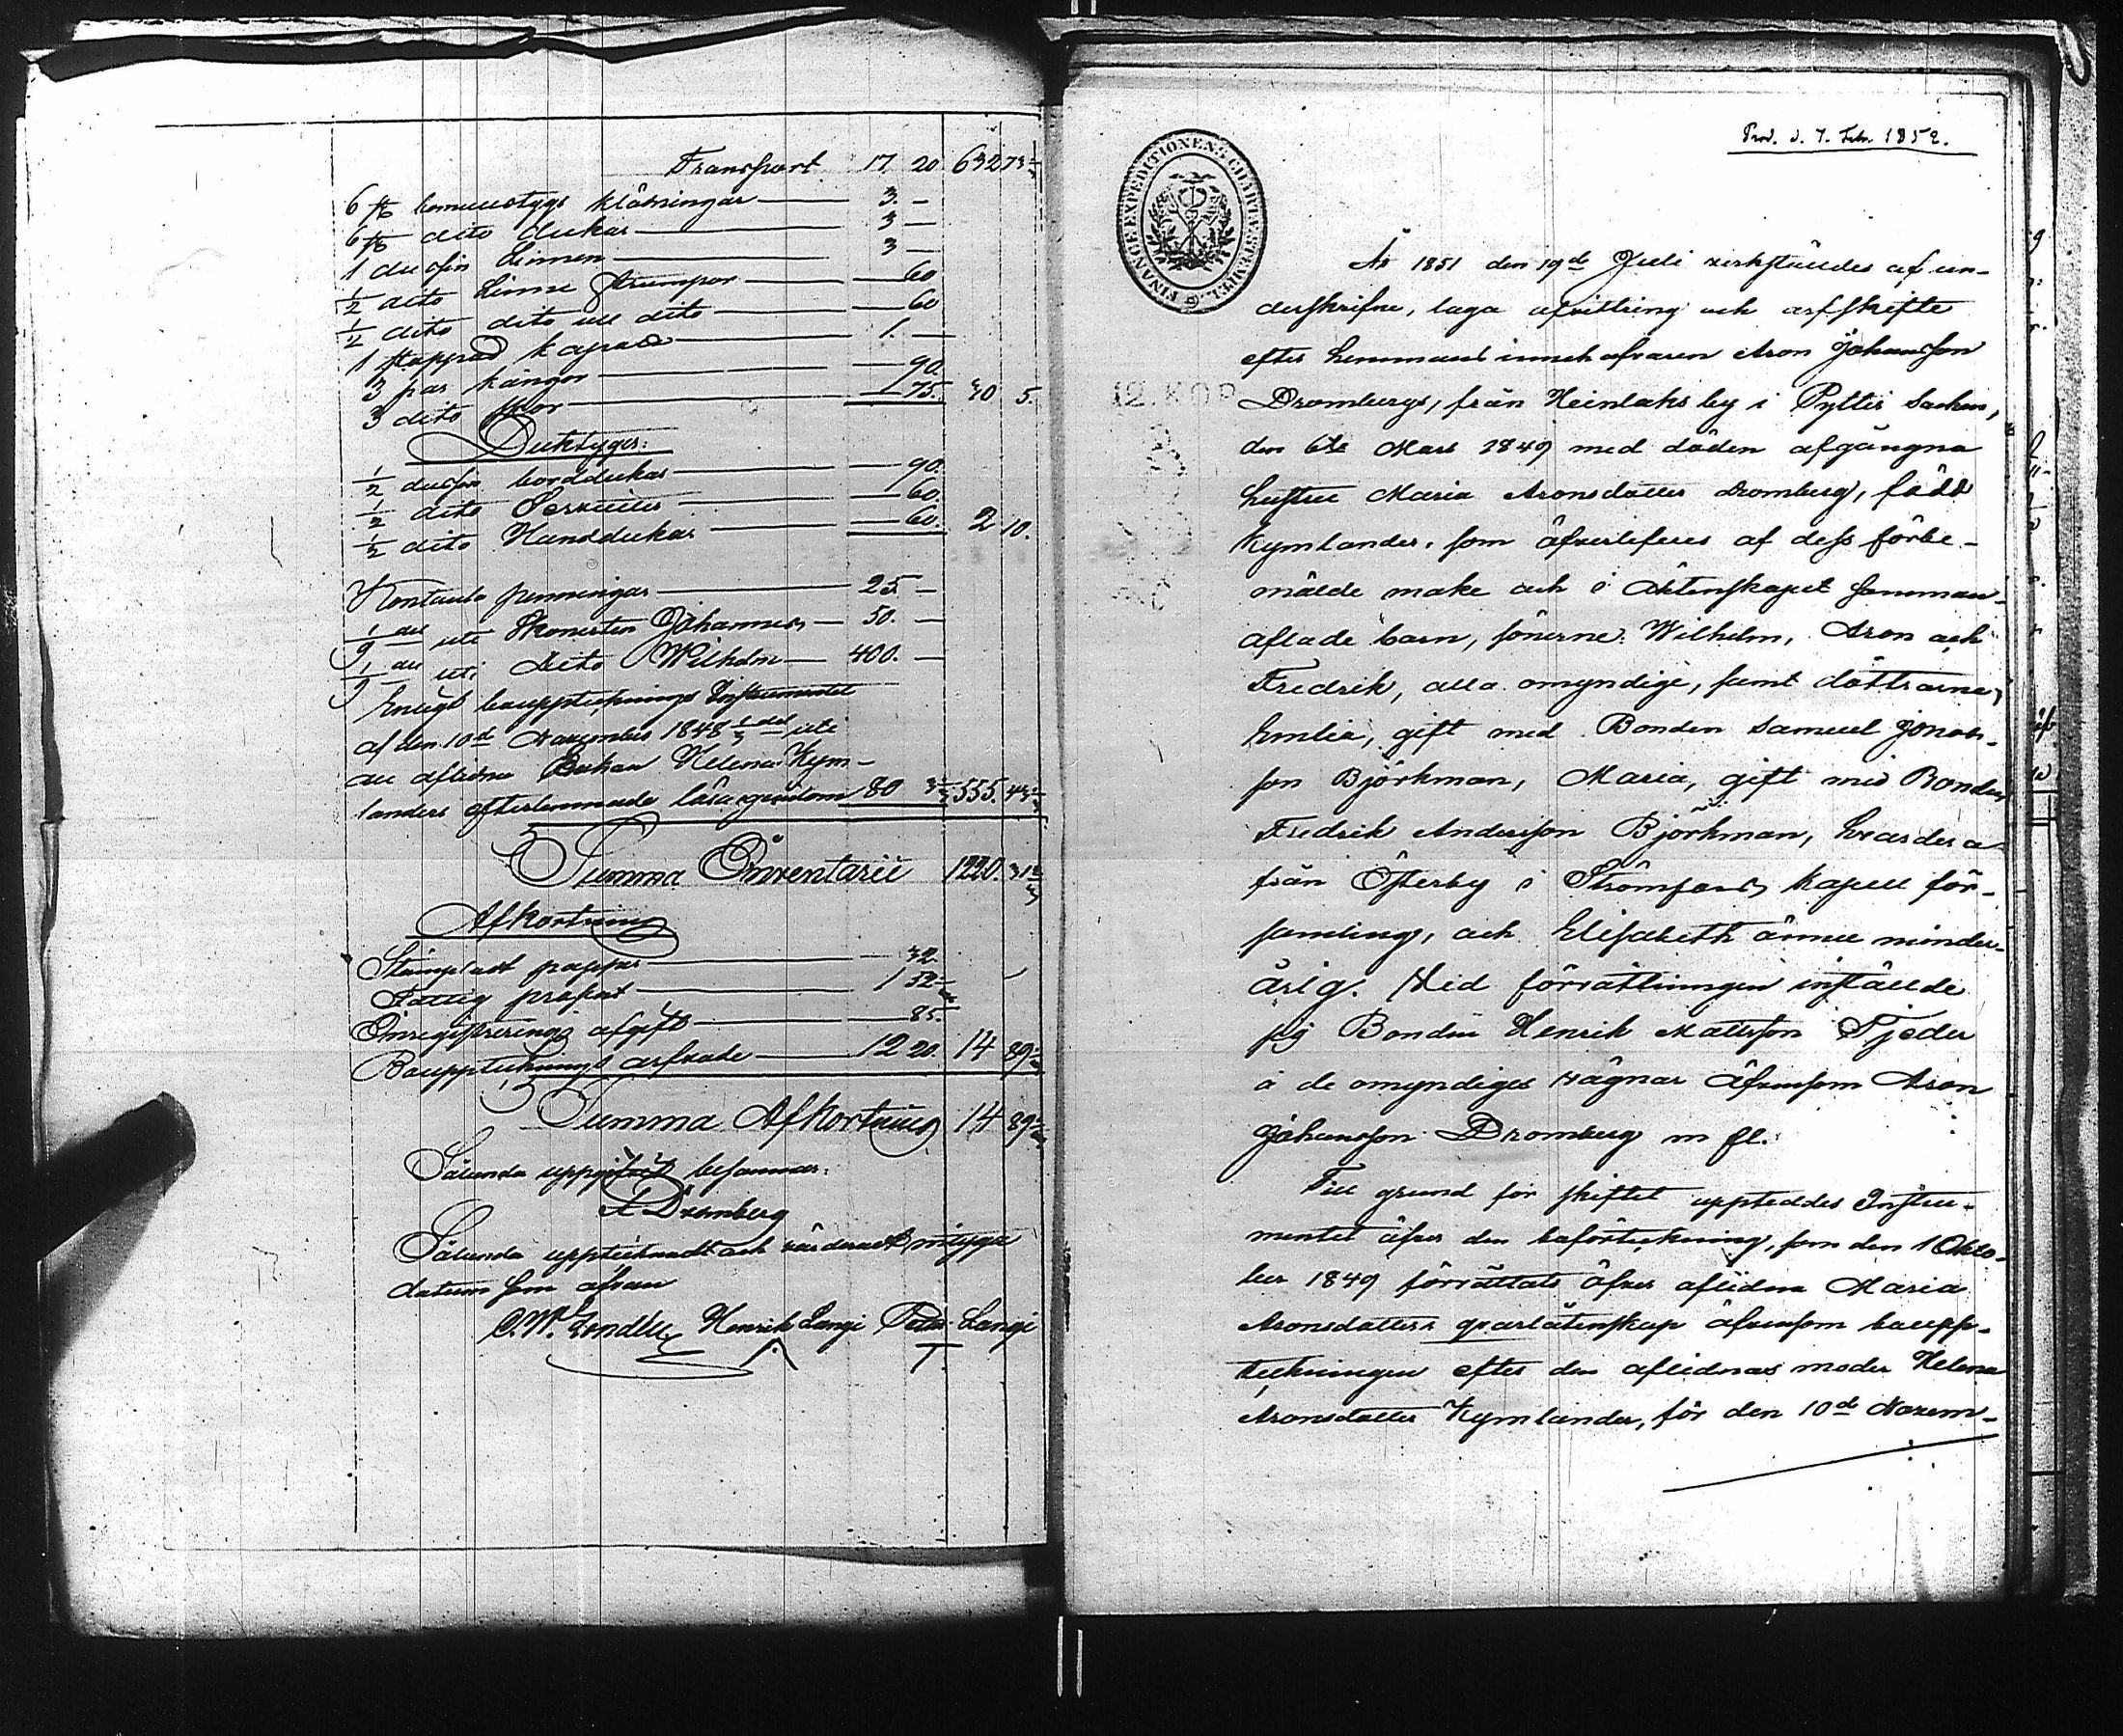 Transport 17. 20 632 73 1/3
6 st bomullstygs klädningar — 3. —
6 st dito dukar — 3 —
1 dussin Linnen — 3 —
1/2 dito Linne strumpor — 60
1/2 dito dito ull dito — 60
1 stoppad kapad — 1. —
3 par kängor — 90.
3 dito skor — 75. 30 5.
Duktyger:
1/2 dussin borddukar — 90.
1/2 dito Servietter — 60.
1/2 dito Handdukar — 60. 2 10.
Kontanta penningar — 25 —
1/9 del uti Skonerten Johannes — 50. —
1/9 del uti Dito Wilhelm — 400. —
Enligt bouppteknings Instrumentet
af den 10de November 1848 1/3 del uti
all aflidna Enkan Helena Kym-
landers efterlemnade lösa egendom 80 3 1/3 555. 43 1/3
Summa Inventarii 1220. 31 2/3
Afkortning
Stämpladt papper — 32.
Fattig procent — 1 52
Inregistrerings afgift — 85.
Boupptecknings arfvode — 12 20. 14 89
Summa Afkortning 14 89
Sålunda uppgifvit besannar:
A Dromberg
Sålunda upptecknadt och värderadt, intyga
datum som ofvan
Henrik Langi Petter Langi
Prod. d. 7. Febr. 1852.
FINANCE EXPEDITIONENS CHARTÆ STEMPEL
12. KOP
År 1851 den 19de Juli verkställdes af un-
derskrifne, laga afvittring och arfskifte
efter hemmans innehafvaren Aron Johansson
Drombergs, från Heinlaks by i Pyttis Socken,
den 6te Mars 1849 med döden afgångna
hustru Maria Aronsdotter Dromberg, född
Kymlander, som öfverlefves af dess förbe-
mälde make och i äktenskapet samman-
aflade barn, sönerne: Wilhelm, Aron och
Fredrik, alla omyndige, samt döttrarne,
Emlia, gift med Bonden Samuel Jonas-
son Björkman, Maria, gift med Bonden
Fredrik Andersson Björkman, hvardera
från Österby i Strömfors kapell för-
samling, och Elisabeth ännu minder-
årig. Vid förrättningen inställde
sig Bonden Henrik Matsson Tjeder
å de omyndiges vägnar äfvensom Aron
Johansson Dromberg m fl.
Till grund för skiftet uppteddes Instru-
mentet öfver den boförteckning, som den 1 Okto-
ber 1849 förrättats öfver aflidna Maria
Aronsdotters qvarlåtenskap äfvensom boupp-
teckningen efter den aflidnas moder Helena
Aronsdotter Kymlander, för den 10de Novem-